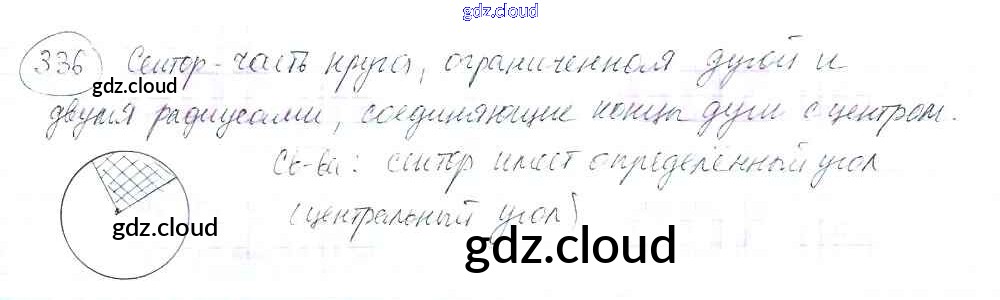 gdz.cloud
336 Сектор - часть круга, ограниченная дугой и
gdz.cloud
двумя радиусами, соединяющие концы дуги с центром.
Св-ва: сектор имеет определённый угол
(центральный угол)
gdz.cloud
gdz.cloud